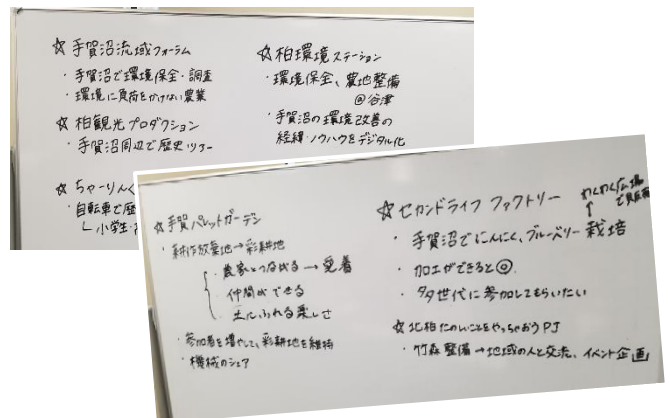 ☆手賀沼流域フォーラム
・手賀沼で環境保全・調査
・環境に負荷をかけない農業
☆柏観光プロダクション
・手賀沼周辺で歴史ツアー
☆ちゃーりんく
・自転車で歴
└小学生・
☆柏環境ステーション
・環境保全、農地整備
@谷津
・手賀沼の環境改善の
経緯・ノウハウをデジタル化
☆手賀パレットガーデン
・耕作放棄地→彩耕地
・農家とつながる→愛着
・仲間ができる
・土にふれる楽しさ
・参加者を増やして、彩耕地を維持
・機械のシェア
☆セカンドライフ ファクトリー
わくわく広場
で販売
↑
・手賀沼でにんにく、ブルーベリー栽培
・加工ができると◎.
・多世代に参加してもらいたい
☆北柏たのしいことをやっちゃおうPJ
・竹森整備→地域の人と交流、イベント企画